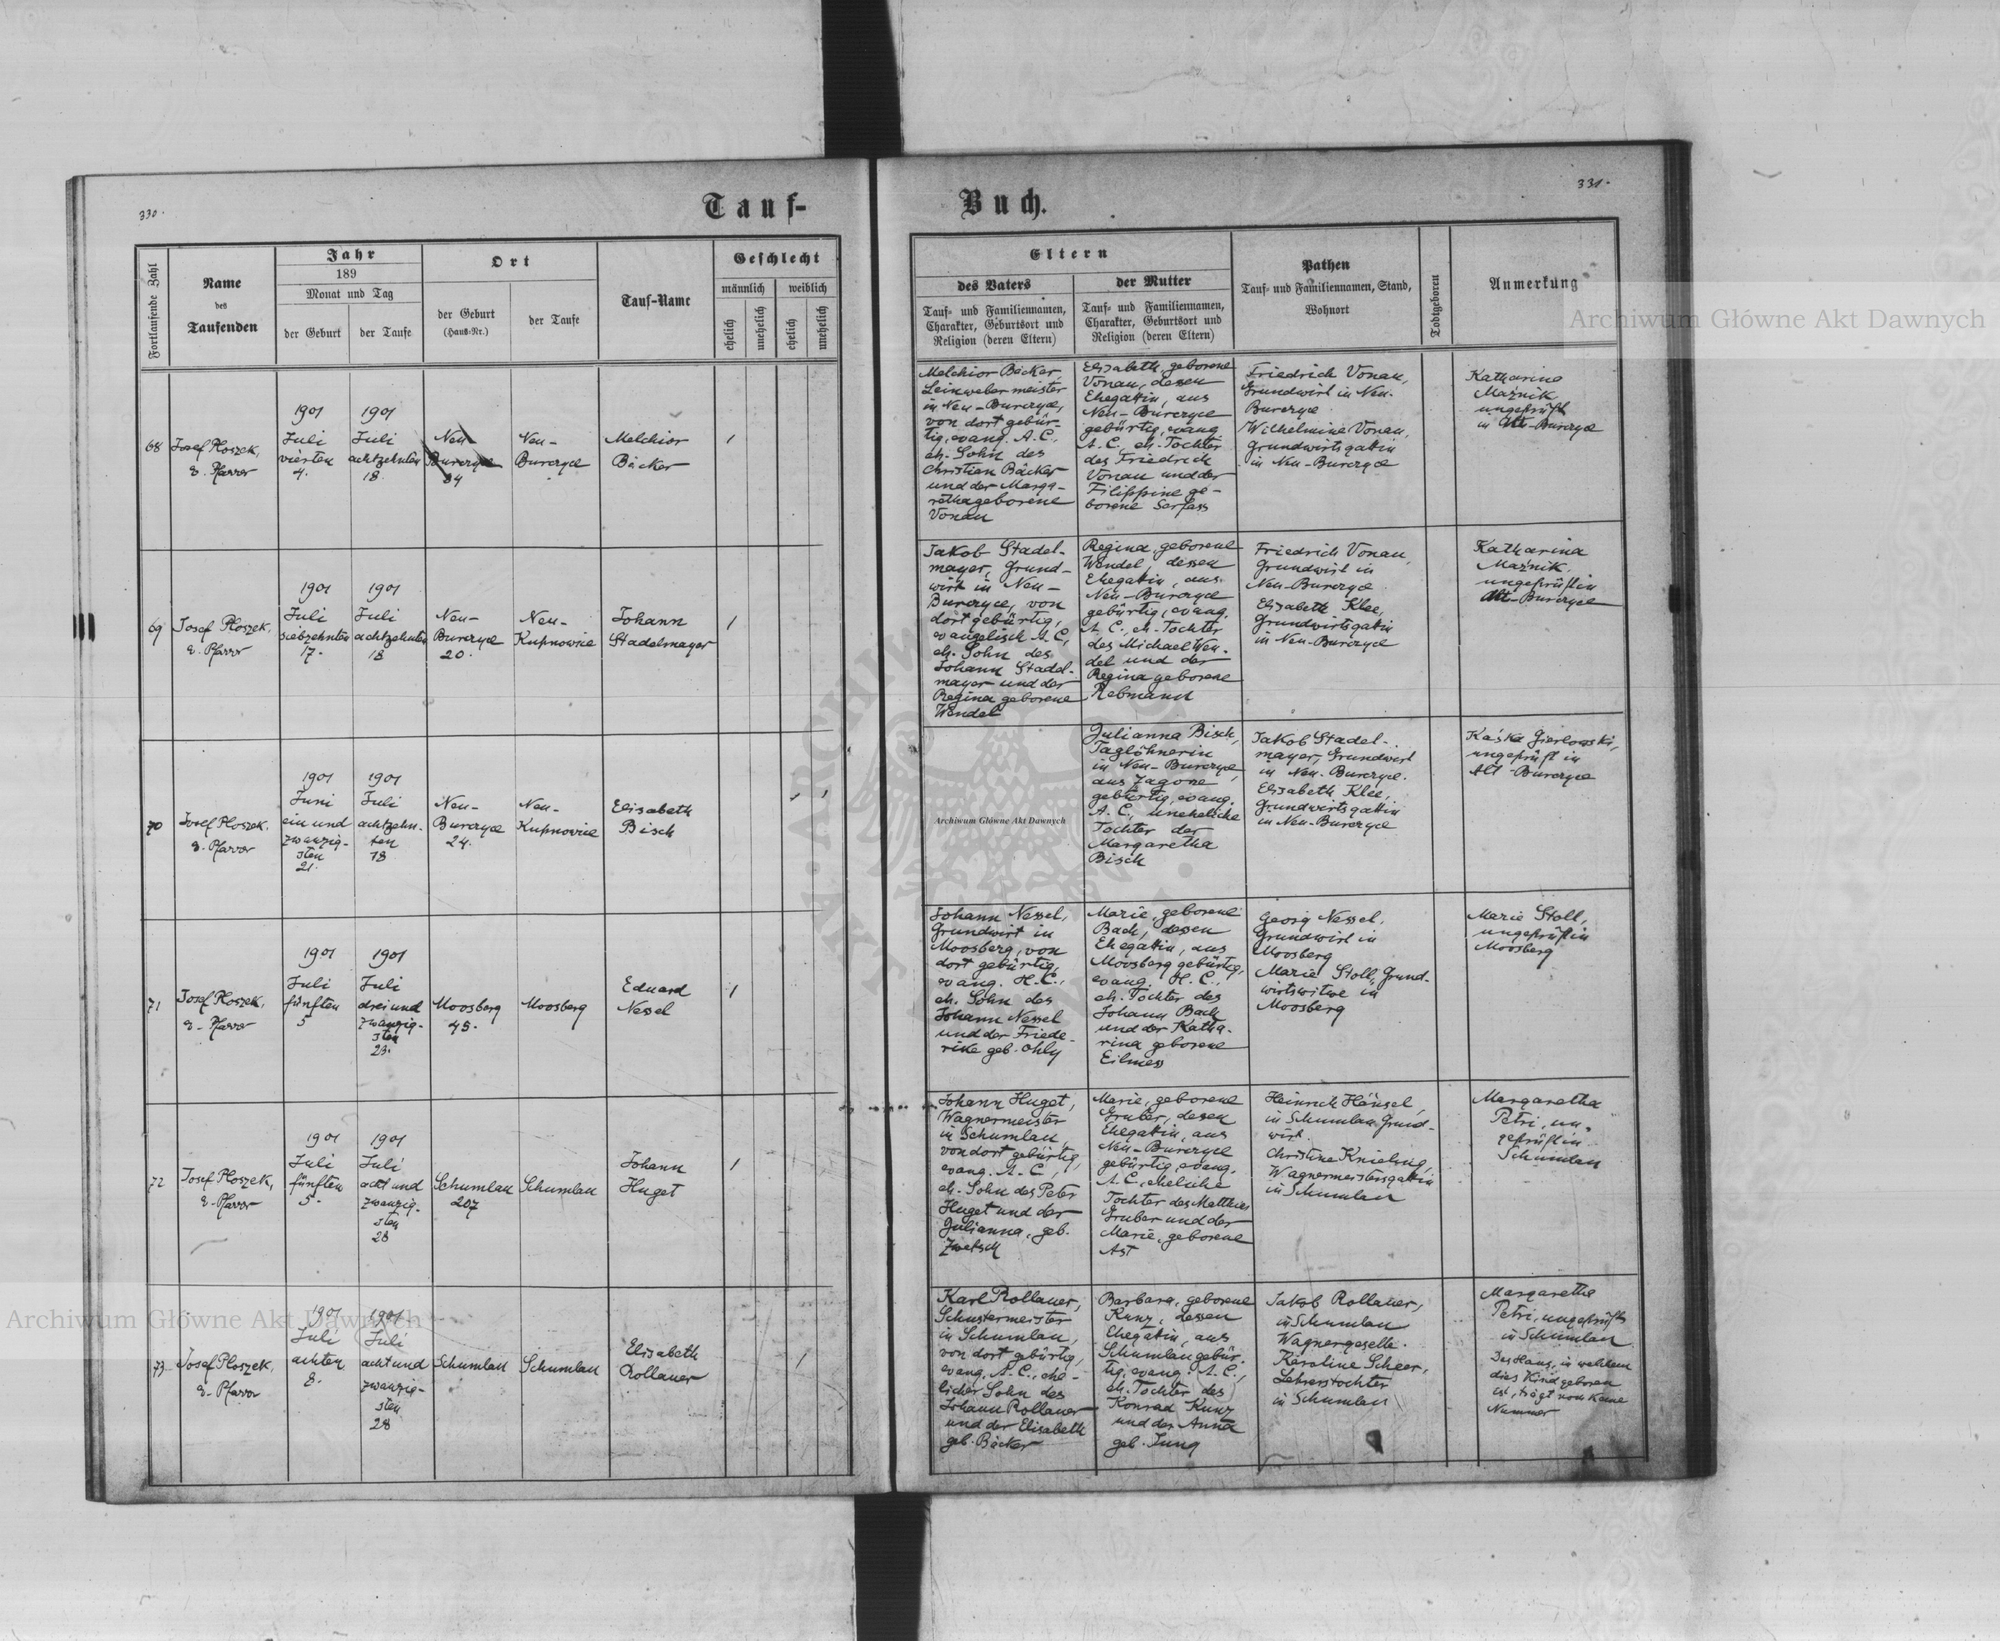 330.
Tauf-
Fortlaufende Zahl
Name
des
Taufenden
Jahr
189
Monat und Tag
der Geburt
der Taufe
Ort
der Geburt
(Haus-Nr.)
der Taufe
Tauf-Name
Geschlecht
männlich
weiblich
ehelich
unehelich
ehelich
unehelich
68
Josef Ploszek,
e. Pfarrer
1901
Juli
vierten
4.
1901
Juli
achtzehnten
18.
Neu
Burczyce
34
Neu-
Burczyce
Melchior
Bäcker
1
69
Josef Ploszek,
e. Pfarrer
1901
Juli
siebzehnten
17.
1901
Juli
achtzehnten
18
Neu-
Burczyce
20.
Neu-
Kupnowice
Johann
Stadelmayer
1
70
Josef Ploszek,
e. Pfarrer
1901
Juni
ein und
zwanzig-
sten
21.
1901
Juli
achtzehn-
ten
18
Neu-
Burczyce
24.
Neu-
Kupnowice
Elisabeth
Bisch
1
71
Josef Ploszek,
e. Pfarrer
1901
Juli
fünften
5
1901
Juli
drei und
zwanzig-
sten
23.
Moosberg
45.
Moosberg
Eduard
Nessel
1
72
Josef Ploszek,
e. Pfarrer
1901
Juli
fünften
5.
1901
Juli
acht und
zwanzig-
sten
28
Schumlau
207
Schumlau
Johann
Huget
1
73
Josef Ploszek,
e. Pfarrer
1901
Juli
achten
8.
1901
Juli
acht und
zwanzig-
sten
28
Schumlau
Schumlau
Elisabeth
Rollauer
1
Buch.
331.
Eltern
des Vaters
Tauf- und Familiennamen,
Charakter, Geburtsort und
Religion (deren Eltern)
der Mutter
Tauf- und Familiennamen,
Charakter, Geburtsort und
Religion (deren Eltern)
Pathen
Tauf- und Familiennamen, Stand,
Wohnort
Todtgeboren
Anmerkung
Melchior Bäcker
Leinwebermeister
in Neu-Burczyce,
von dort gebür-
tig, evang. A. C.,
eh. Sohn des
Christian Bäcker
und der Marga-
retha geborene
Vonau
Elisabeth, geborene
Vonau, dessen
Ehegattin, aus
Neu-Burczyce
gebürtig, evang.
A. C., eh. Tochter
des Friedrich
Vonau und der
Filippine ge-
borene Serfass
Friedrich Vonau,
Grundwirt in Neu-
Burczyce.
Wilhelmine Vonau,
Grundwirtsgattin
in Neu-Burczyce
Katharina
Maźnik
ungeprüft
in Alt-Burczyce
Jakob Stadel-
mayer, Grund-
wirt in Neu-
Burczyce, von
dort gebürtig,
evangelisch A. C.,
eh. Sohn des
Johann Stadel-
mayer und der
Regina geborene
Wendel
Regina, geborene
Wendel, dessen
Ehegattin, aus
Neu-Burczyce
gebürtig, evang.
A. C., eh. Tochter
des Michael Wen-
del und der
Regina geborene
Rebmann
Friedrich Vonau,
Grundwirt in
Neu-Burczyce.
Elisabeth Klee,
Grundwirtsgattin
in Neu-Burczyce
Katharina
Maźnik,
ungeprüft in
Alt-Burczyce
Julianna Bisch,
Taglöhnerin
in Neu-Burczyce,
aus Zagone
gebürtig, evang.
A. C., uneheliche
Tochter der
Margaretha
Bisch
Jakob Stadel-
mayer, Grundwirt
in Neu-Burczyce.
Elisabeth Klee,
Grundwirtsgattin
in Neu-Burczyce
Kaśka Gierlowski,
ungeprüft in
Alt-Burczyce
Johann Nessel,
Grundwirt in
Moosberg, von
dort gebürtig,
evang. H. C.,
eh. Sohn des
Johann Nessel
und der Friede-
rike geb. Ohly
Marie, geborene
Bach, dessen
Ehegattin, aus
Moosberg gebürtig,
evang. H. C.,
eh. Tochter des
Johann Bach
und der Katha-
rina geborene
Eilmess
Georg Nessel,
Grundwirt in
Moosberg
Marie Stoll, Grund-
wirtswitwe in
Moosberg
Marie Stoll,
ungeprüft in
Moosberg
Johann Huget,
Wagnermeister
in Schumlau,
von dort gebürtig,
evang. A. C.,
eh. Sohn des Peter
Huget und der
Julianna, geb.
Zwetsch
Marie, geborene
Gruber, dessen
Ehegattin, aus
Neu-Burczyce
gebürtig, evang.
A. C., eheliche
Tochter des Matthias
Gruber und der
Marie, geborene
Ast
Heinrich Hänsel,
in Schumlau Grund-
wirt.
Christine Knielsig,
Wagnermeistersgattin
in Schumlau
Margaretha
Petri, un-
geprüft in
Schumlau
Karl Rollauer,
Schustermeister
in Schumlau,
von dort gebürtig,
evang. A. C., ehe-
licher Sohn des
Johann Rollauer
und der Elisabeth
geb. Bäcker
Barbara, geborene
Kunz, dessen
Ehegattin, aus
Schumlau gebür-
tig, evang. A. C.,
eh. Tochter des
Konrad Kunz
und der Anna
geb. Jung
Jakob Rollauer,
in Schumlau
Wagnergeselle.
Karoline Scheer,
Lehrerstochter
in Schumlau
Margaretha
Petri, ungeprüft
in Schumlau
Das Haus, in welchem
dies Kind geboren
ist, trägt noch keine
Nummer
Archiwum Główne Akt Dawnych
Archiwum Główne Akt Dawnych
Archiwum Główne Akt Dawnych